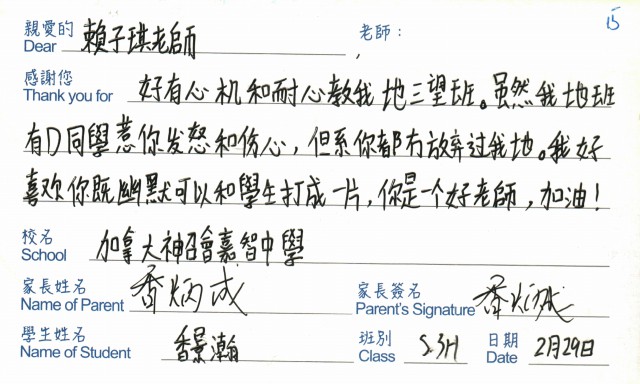 15
親愛的 賴子琪老師 老師：
Dear ,
感謝您 好有心机和耐心教我地三望班。虽然我地班
Thank you for
有D同學惹你发怒和伤心，但系你都冇放弃过我地。我好
喜欢你既幽默可以和學生打成一片，你是一个好老師，加油！
校名 加拿大神召會嘉智中學
School
家長姓名 香炳成 家長簽名 香炳成
Name of Parent Parent's Signature
學生姓名 香景瀚 班別 S.3H 日期 2月29日
Name of Student Class Date